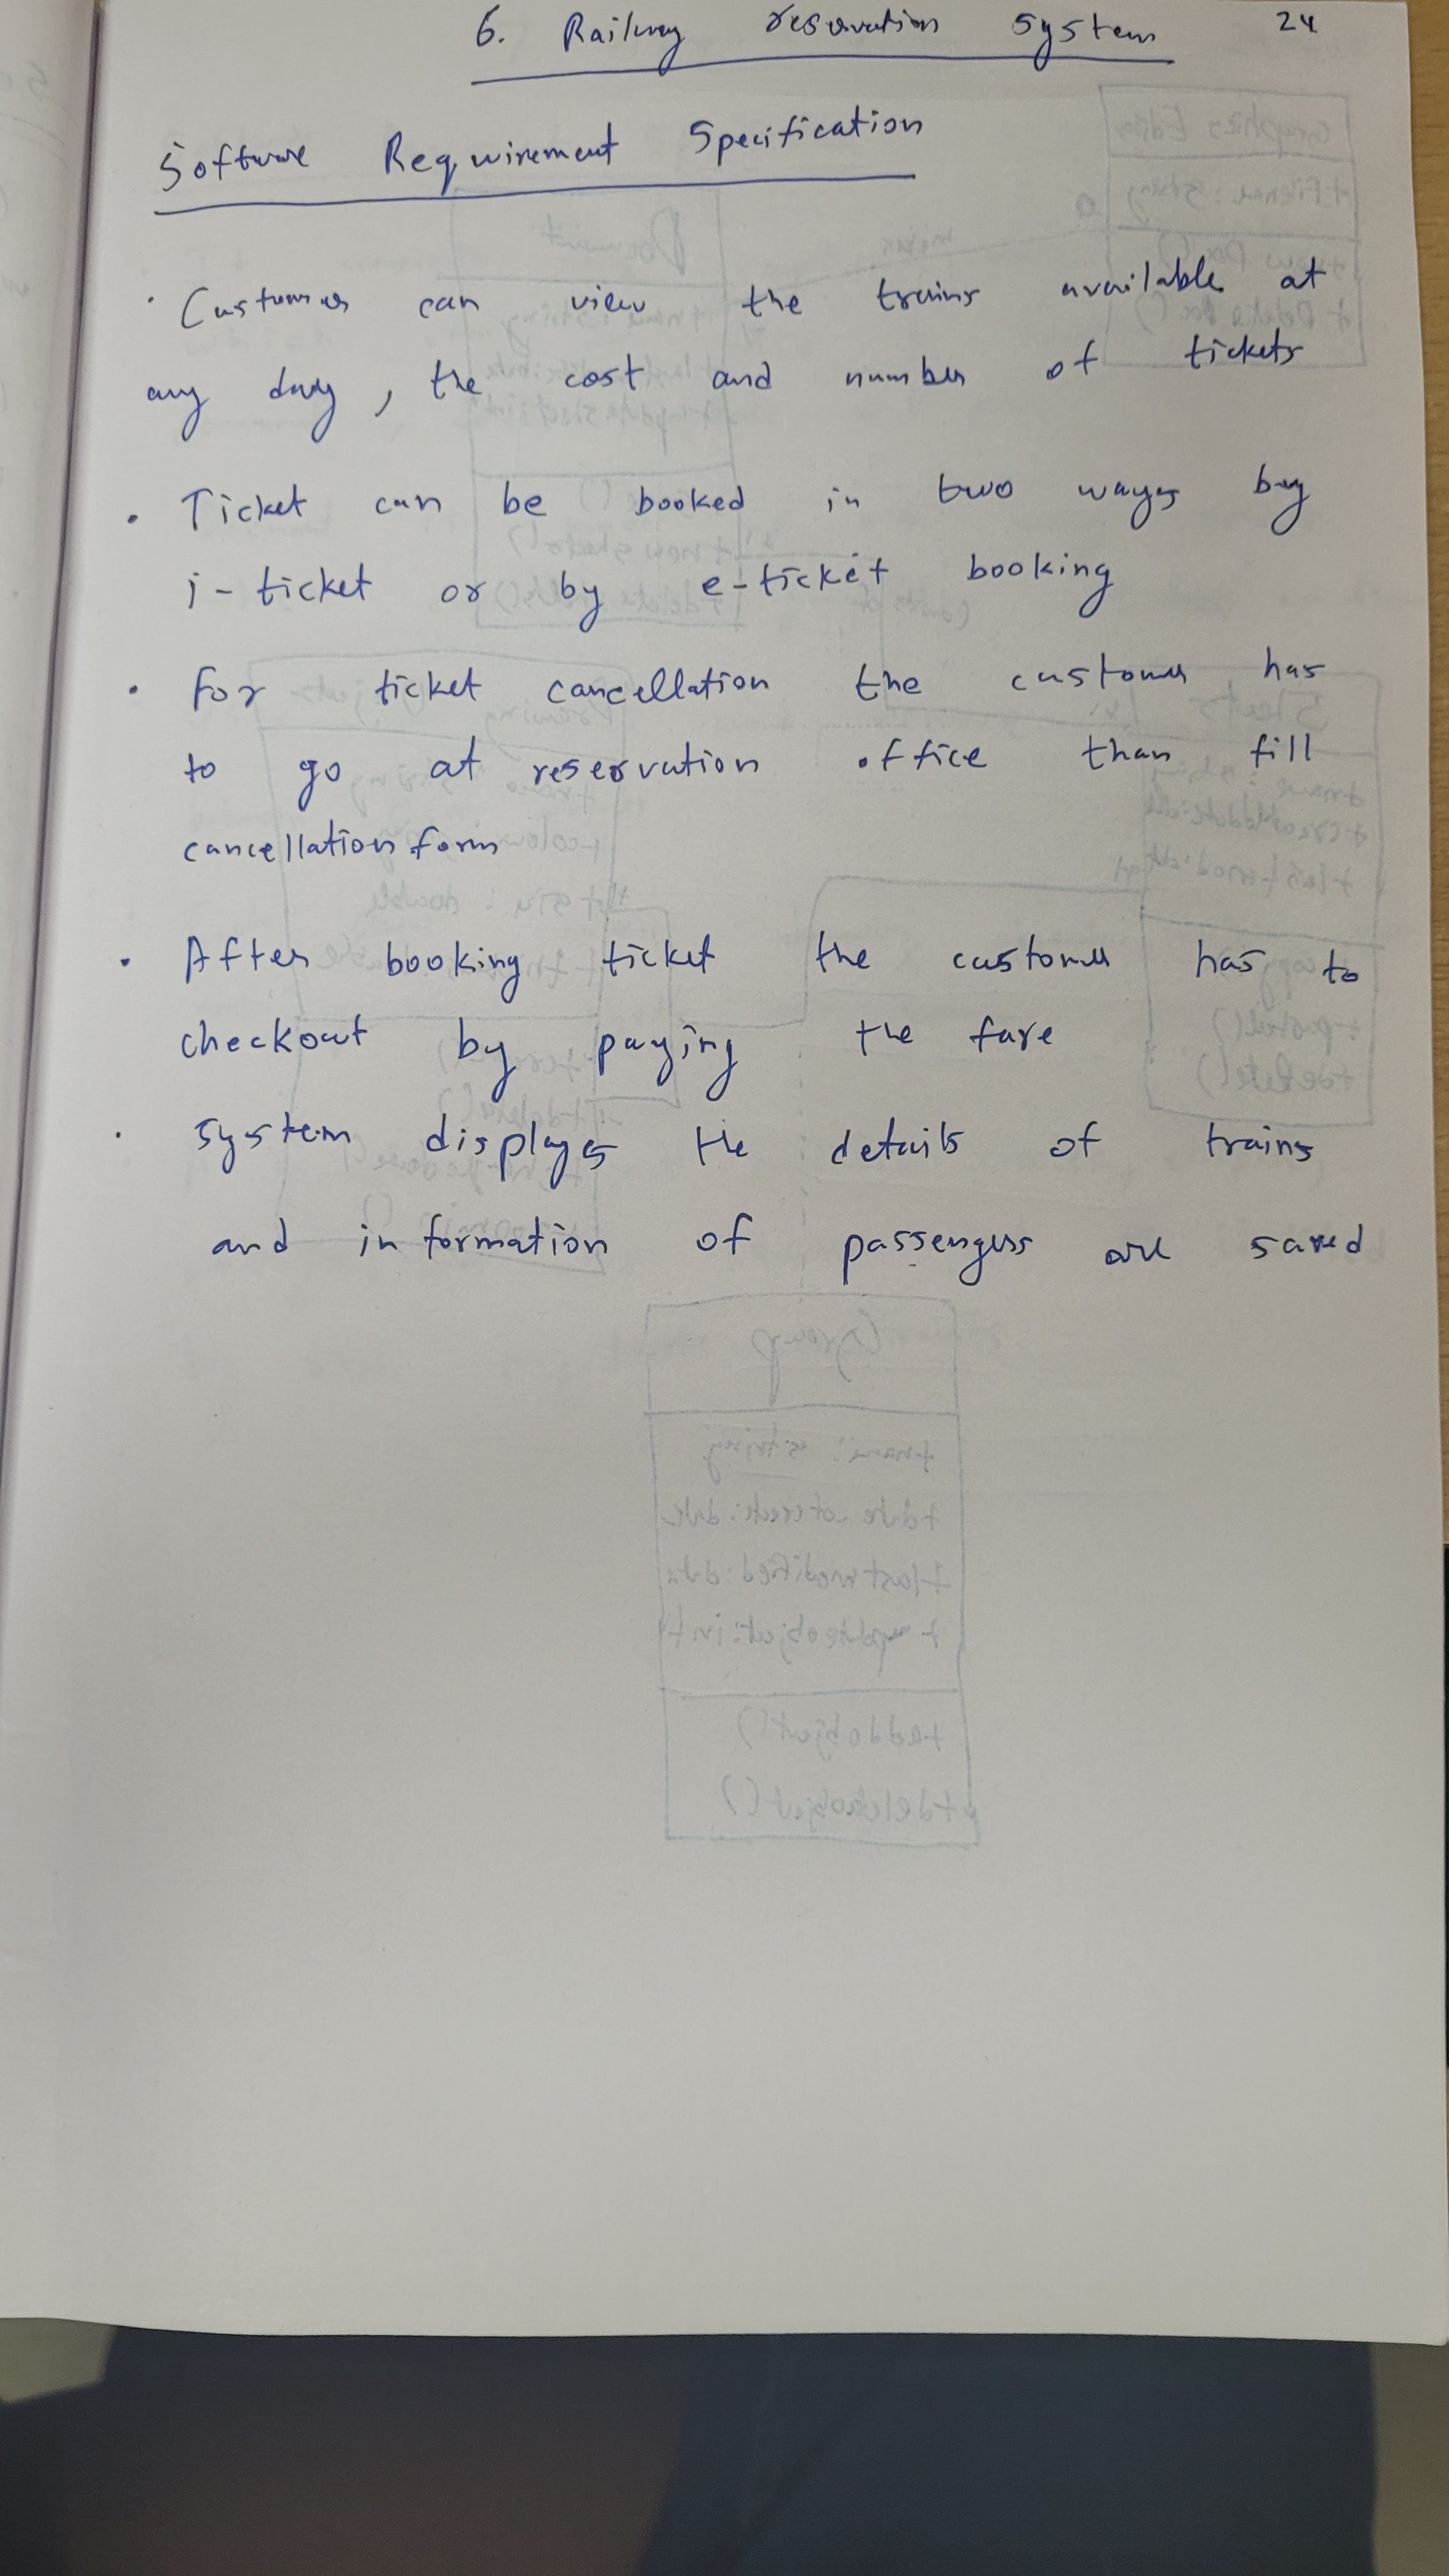 6. Railway reservation system 24
Software Requirement Specification
• Customers can view the trains available at
any day, the cost and number of tickets
• Ticket can be booked in two ways by
i-ticket or by e-ticket booking
• For ticket cancellation the customer has
to go at reservation office than fill
cancellation form
• After booking ticket the customer has to
checkout by paying the fare
• system displays the details of trains
and information of passengers are saved